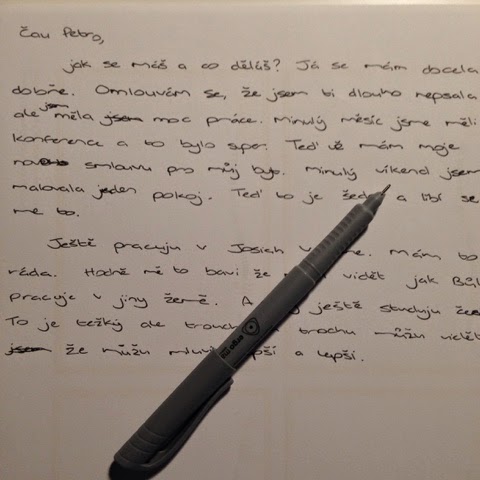 Čau Petro,
jak se máš a co děláš? Já se mám docela
dobře. Omlouvám se, že jsem bi dlouho nepsala
ale jsem měla jsem moc práce. Minulý měsíc jsme měli
konference a to bylo super. Teď už mám moje
smlouvu pro můj byt. Minulý víkend jsem
malovala jeden pokoj. Teď to je a líbí se
me to.
Ještě pracuju v Josiah. Mám to
ráda. Hodně mě to baví že vidět jak Bůh
pracuje v jiny země. A ještě studuju
To je težký ale trochu můžu vidět
jsem že můžu lepší a lepší.